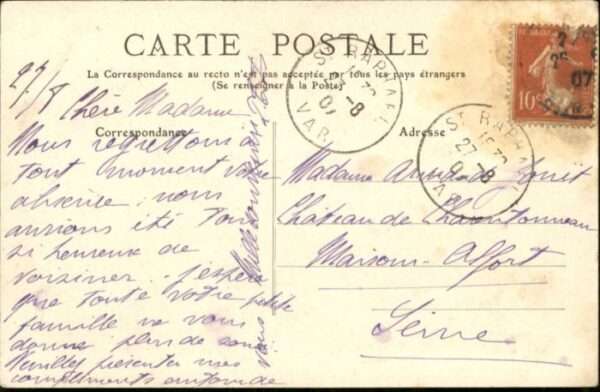 CARTE POSTALE
La Correspondance au recto n'est pas acceptée par tous les pays étrangers
(Se renseigner à la Poste)
Correspondance
Adresse
27/8
Chère Madame
Nous regrettons à
tout moment votre
absence, nous
aurions été tous
si heureux de
voisiner. J'espère
que toute votre petite
famille ne vous
donne plus de souci
Veuillez présenter mes
compliments autour de
vous
Mille
Madame
Château de Chantonneau
Maisons-Alfort
Seine
ST RAPHAEL
27-8
07
VAR
ST RAPHAEL
27-8
07
VAR
10
07